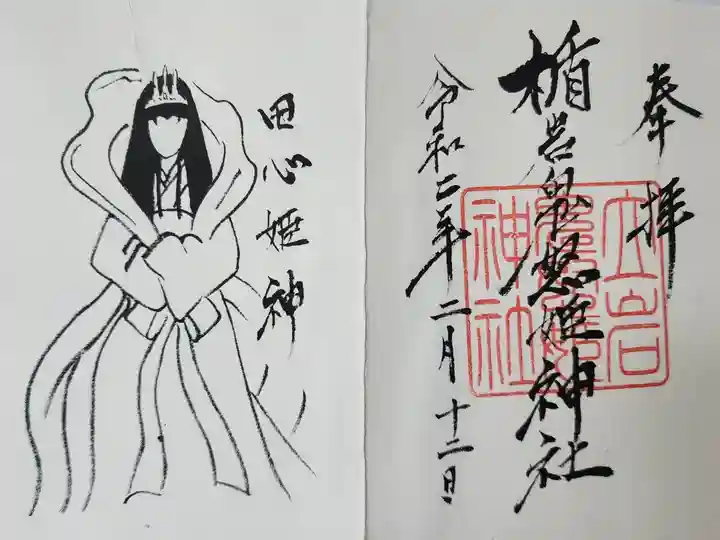 奉拝
楯岩鬼怒姫神社
立岩
神社
令和二年二月十二日
田心姫神